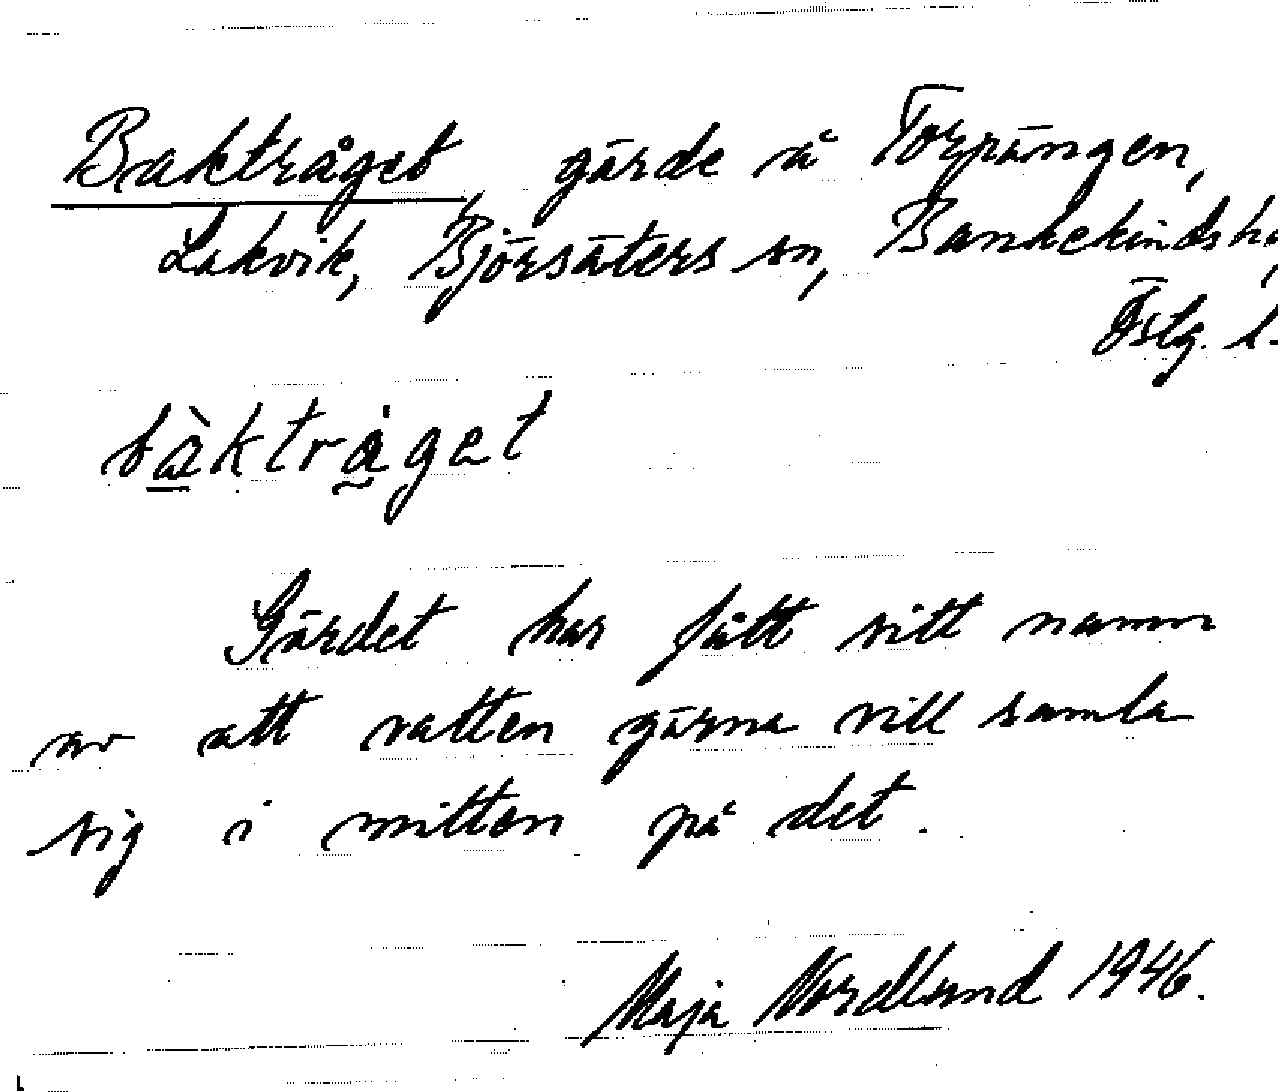 Baktråget, gärde å Torpängen,
Lakvik, Björsäters sn, Bankekinds h
Östg. l.
bàktråget
Gärdet har fått sitt namn
av att vatten gärna vill samla
sig i mitten på det.
Maja Nordlund 1946.